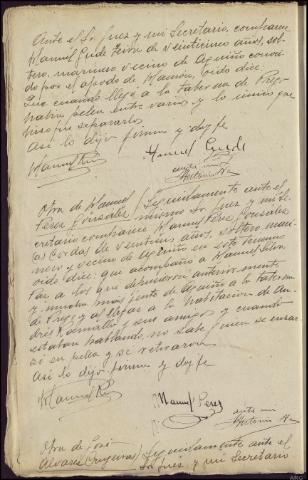 Ante el Sr. Juez y mi Secretario, comparece
Manuel Gude Teira de veinticinco años, sol-
tero, marinero vecino de Aguiño conoci-
do por el apodo de Ramón, oido dice:
Que cuando llegó a la taberna de Prego
había pelea entre varios y lo unico que
hizo fue separarlos
Así lo dijo firma y doy fe
Manuel Gude
ante mi
Otra de Manuel
Perez Gonzalez / Seguidamente ante el
mismo Sr. Juez y mi Se-
cretario comparece Manuel Perez Gonzalez
de veintiun años, soltero mari-
nero y vecino de Aguiño en este termino
oido dice: que acompaño a Manuel
a los que depusieron anteriormente
y mucha mas gente de Aguiño a la taberna
de Prego y al llegar a la habitacion de An-
drés y sus amigos y cuando
estaban hablando, no sabe quien se enzar
zó en pelea y se retiraron
Así lo dijo firma y doy fe
Manuel Perez
ante mi
Otra de José
Alvarez / Seguidamente ante el
Sr. Juez y mi Secretario